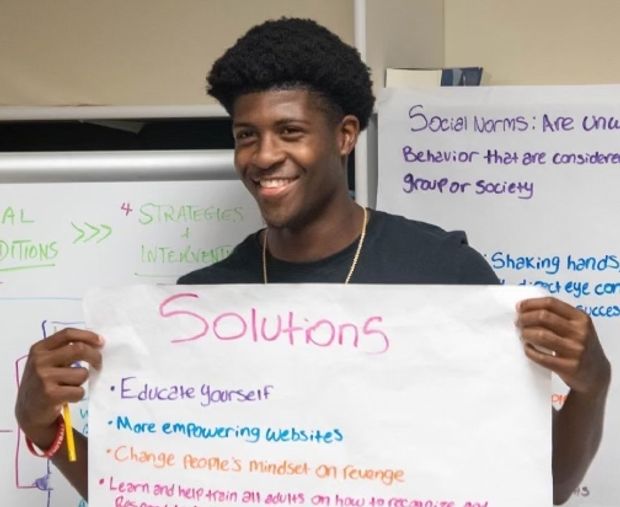 Social Norms: Are
Behavior that are considered
group or society
Shaking hands,
direct eye
4 STRATEGIES
+
>>>
Solutions
• Educate yourself
• More empowering websites
• Change people's mindset on revenge
• Learn and help train all adults on how to recognize and